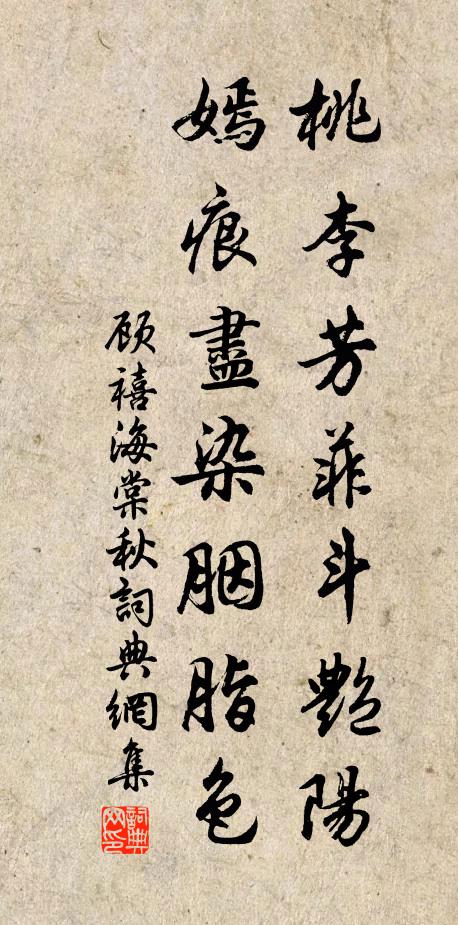 桃李芳菲斗艷陽
嫣痕盡染胭脂色
顾禧海棠秋詞典網集
詞典网印